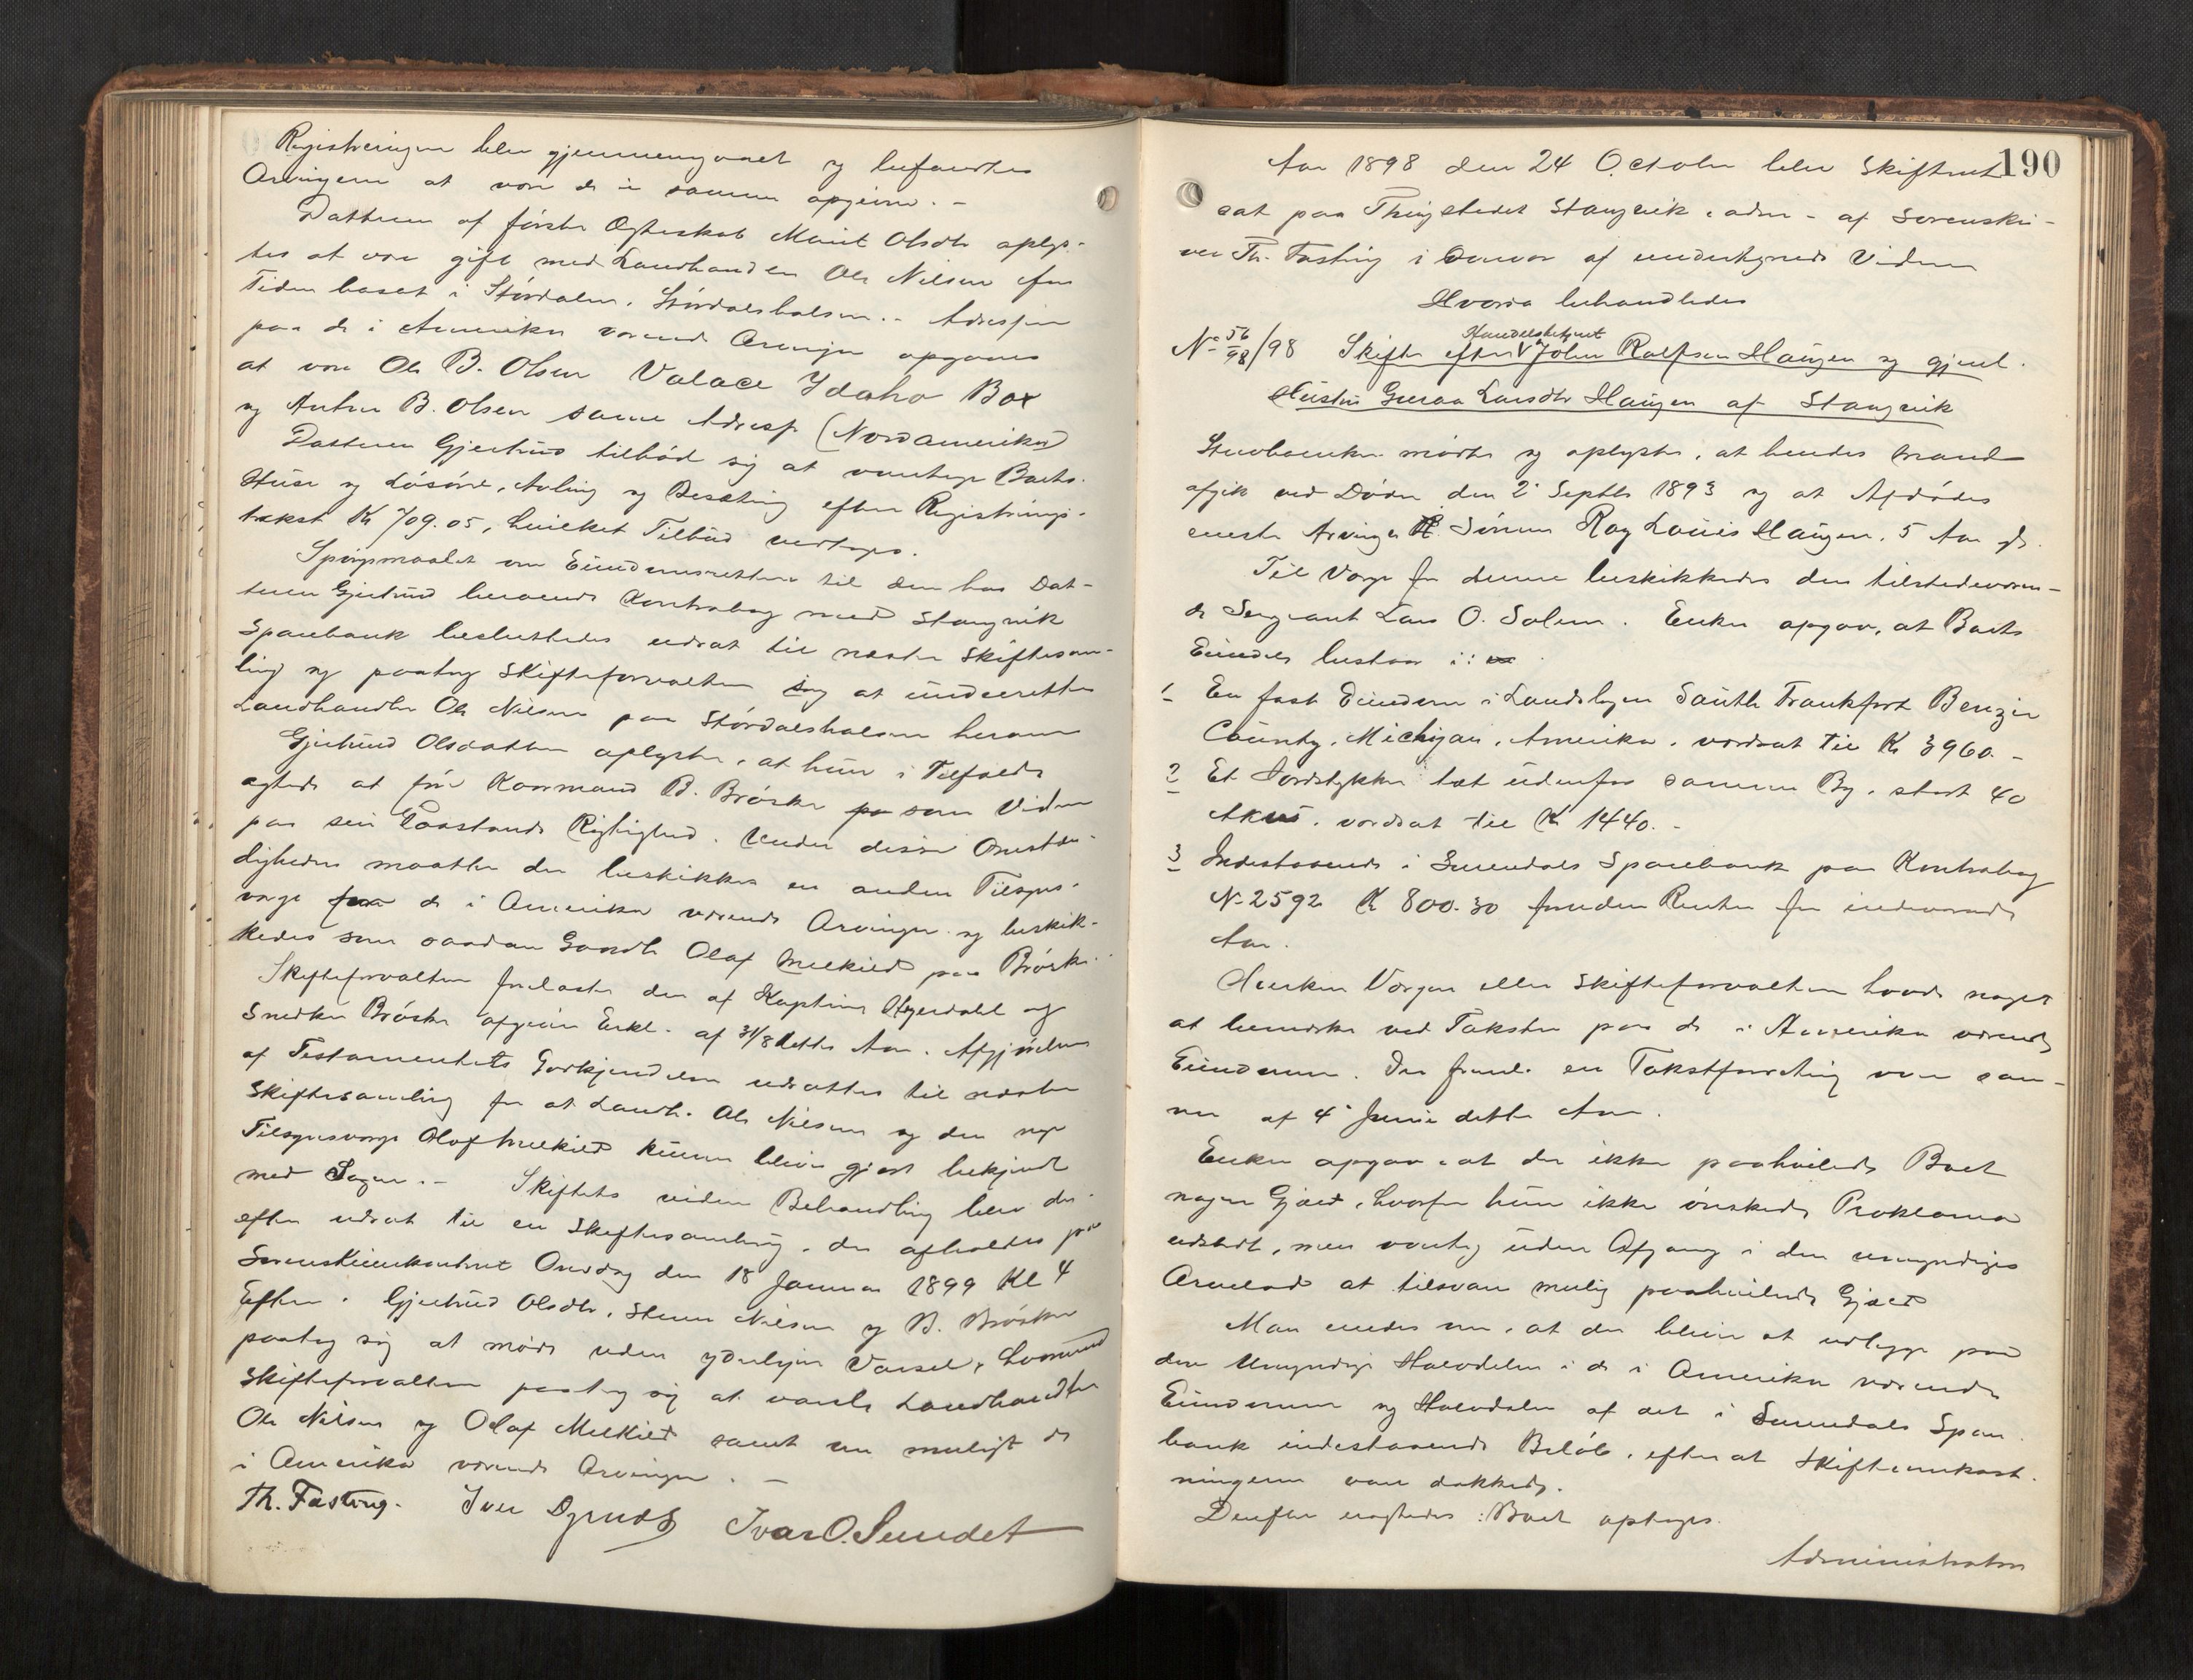 Registreringen blev gjennemgaaet og befandtes
Arvingerne at være de i samme opgivne. -
Datteren af første Ægteskab Marit Olsdtr oplys-
tes at være gift med Landhandler Ole Nilsen for
Tiden bosat i Størdalen, Størdalshalsen. - Adressen
paa de i Amerika værende Arvinger opgaves
at være Ole B. Olsen Valace Ydaho Box
og Anton B. Olsen samme Adresse (Nordamerika)
Datteren Gjertrud tilbød sig at overtage Boets
Huse og Løsøre, Avling og Besætning efter Registrerings-
takst Kr 709.05, hvilket Tilbud vedtoges.
Spørgsmaalet om Eiendomsretten til den hos Dat-
teren Gjertrud beroende Kontrabog med Stangvik
Sparebank besluttedes udsat til næste Skiftesam-
ling og paatog Skifteforvalteren sig at underrette
Landhandler Ole Nilsen paa Størdalshalsen herom
Gjertrud Olsdatter oplyste, at hun i Tilfælde
agtede at føre Kaarmand B. Brøske som Vidne
paa sin Paastands Rigtighed. Under disse Omstæn-
digheder maatte der beskikkes en anden Tilsyns-
verge for de i Amerika værende Arvinger og beskik-
kedes som saadan Gaardbr Olaf Melkild paa Brøske.
Skifteforvalteren forelæste den af Kaptein Ægerdahl og
Snedker Brøske afgivne Erkl. af 31/8 dette Aar. Afgjørelsen
af Testamentets Godkjendelse udsattes til næste
Skiftesamling for at Landh. Ole Nilsen og den nye
Tilsynsverge Olaf Melkild kunne blive gjort bekjendt
med Sagen. - Skiftets videre Behandling blev der-
efter udsat til en Skiftesamling, der afholdes paa
Sorenskriverkontoret Onsdag den 18 Januar 1899 Kl 4
Efterm. Gjertrud Olsdtr, Sten Nilsen og B. Brøske
paatog sig at møde uden yderligere Varsel, hvormed
Skifteforvalteren paatog sig at varsle Landhandler
Ole Nilsen og Olaf Melkild samt om muligt de
i Amerika værende Arvinger. -
Th. Fasting. Iver Ivar O. Sundet
190
Aar 1898 den 24 October blev Skifteret
sat paa Thingstedet Stangvik, adm. af Sorenskri-
ver Th. Fasting i Overvær af undertegnede Vidner
Hvorda behandledes
No 56/98 /98 Skifte efter Handelsbetjent John Rolfsen Haugen og gjenl.
Hustru Guroa Larsdtr Haugen af Stangvik
Stervboenken mødte og oplyste, at hendes Mand
afgik ved Døden den 2. Septbr 1893 og at Afdødes
eneste Arving er Sønnen Roy Louis Haugen, 5 Aar gl.
Til Verge for denne beskikkedes den tilstedeværen-
de Sergeant Lars O. Solem. Enken opgav, at Boets
Eiendele bestaar i:
1 En fast Eiendom i Landsbyen South Frankfort Benzie
County, Michigan, Amerika, værdsat til Kr 3960. -
2 Et Jordstykke tæt udenfor samme By, stort 40
Akres, værdsat til Kr 1440. -
3 Indestaaende i Surendals Sparebank paa Kontrabog
No 2592 Kr 800.30 foruden Renter for indeværende
Aar.
Hverken Vergen eller Skifteforvalteren havde noget
at bemærke ved Taksten paa de i Amerika værende
Eiendomme. Der forel. en Takstforretning over sam-
me af 4. Juni dette Aar.
Enken opgav, at der ikke paahvilede Boet
nogen Gjæld, hvorfor hun ikke ønskede Proklama
udstedt, men overtog uden Afgang i den umyndiges
Arvelod at tilsvare mulig paahvilende Gjæld
Man enedes om, at der bliver at udlægge paa
den Umyndige Halvdelen i de i Amerika værende
Eiendomme og Halvdelen af det i Surendals Spare-
bank indestaaende Beløb, efter at Skifteomkost-
ningerne vare dækkede.
Derefter eragtedes: Boet optages.
Administrator